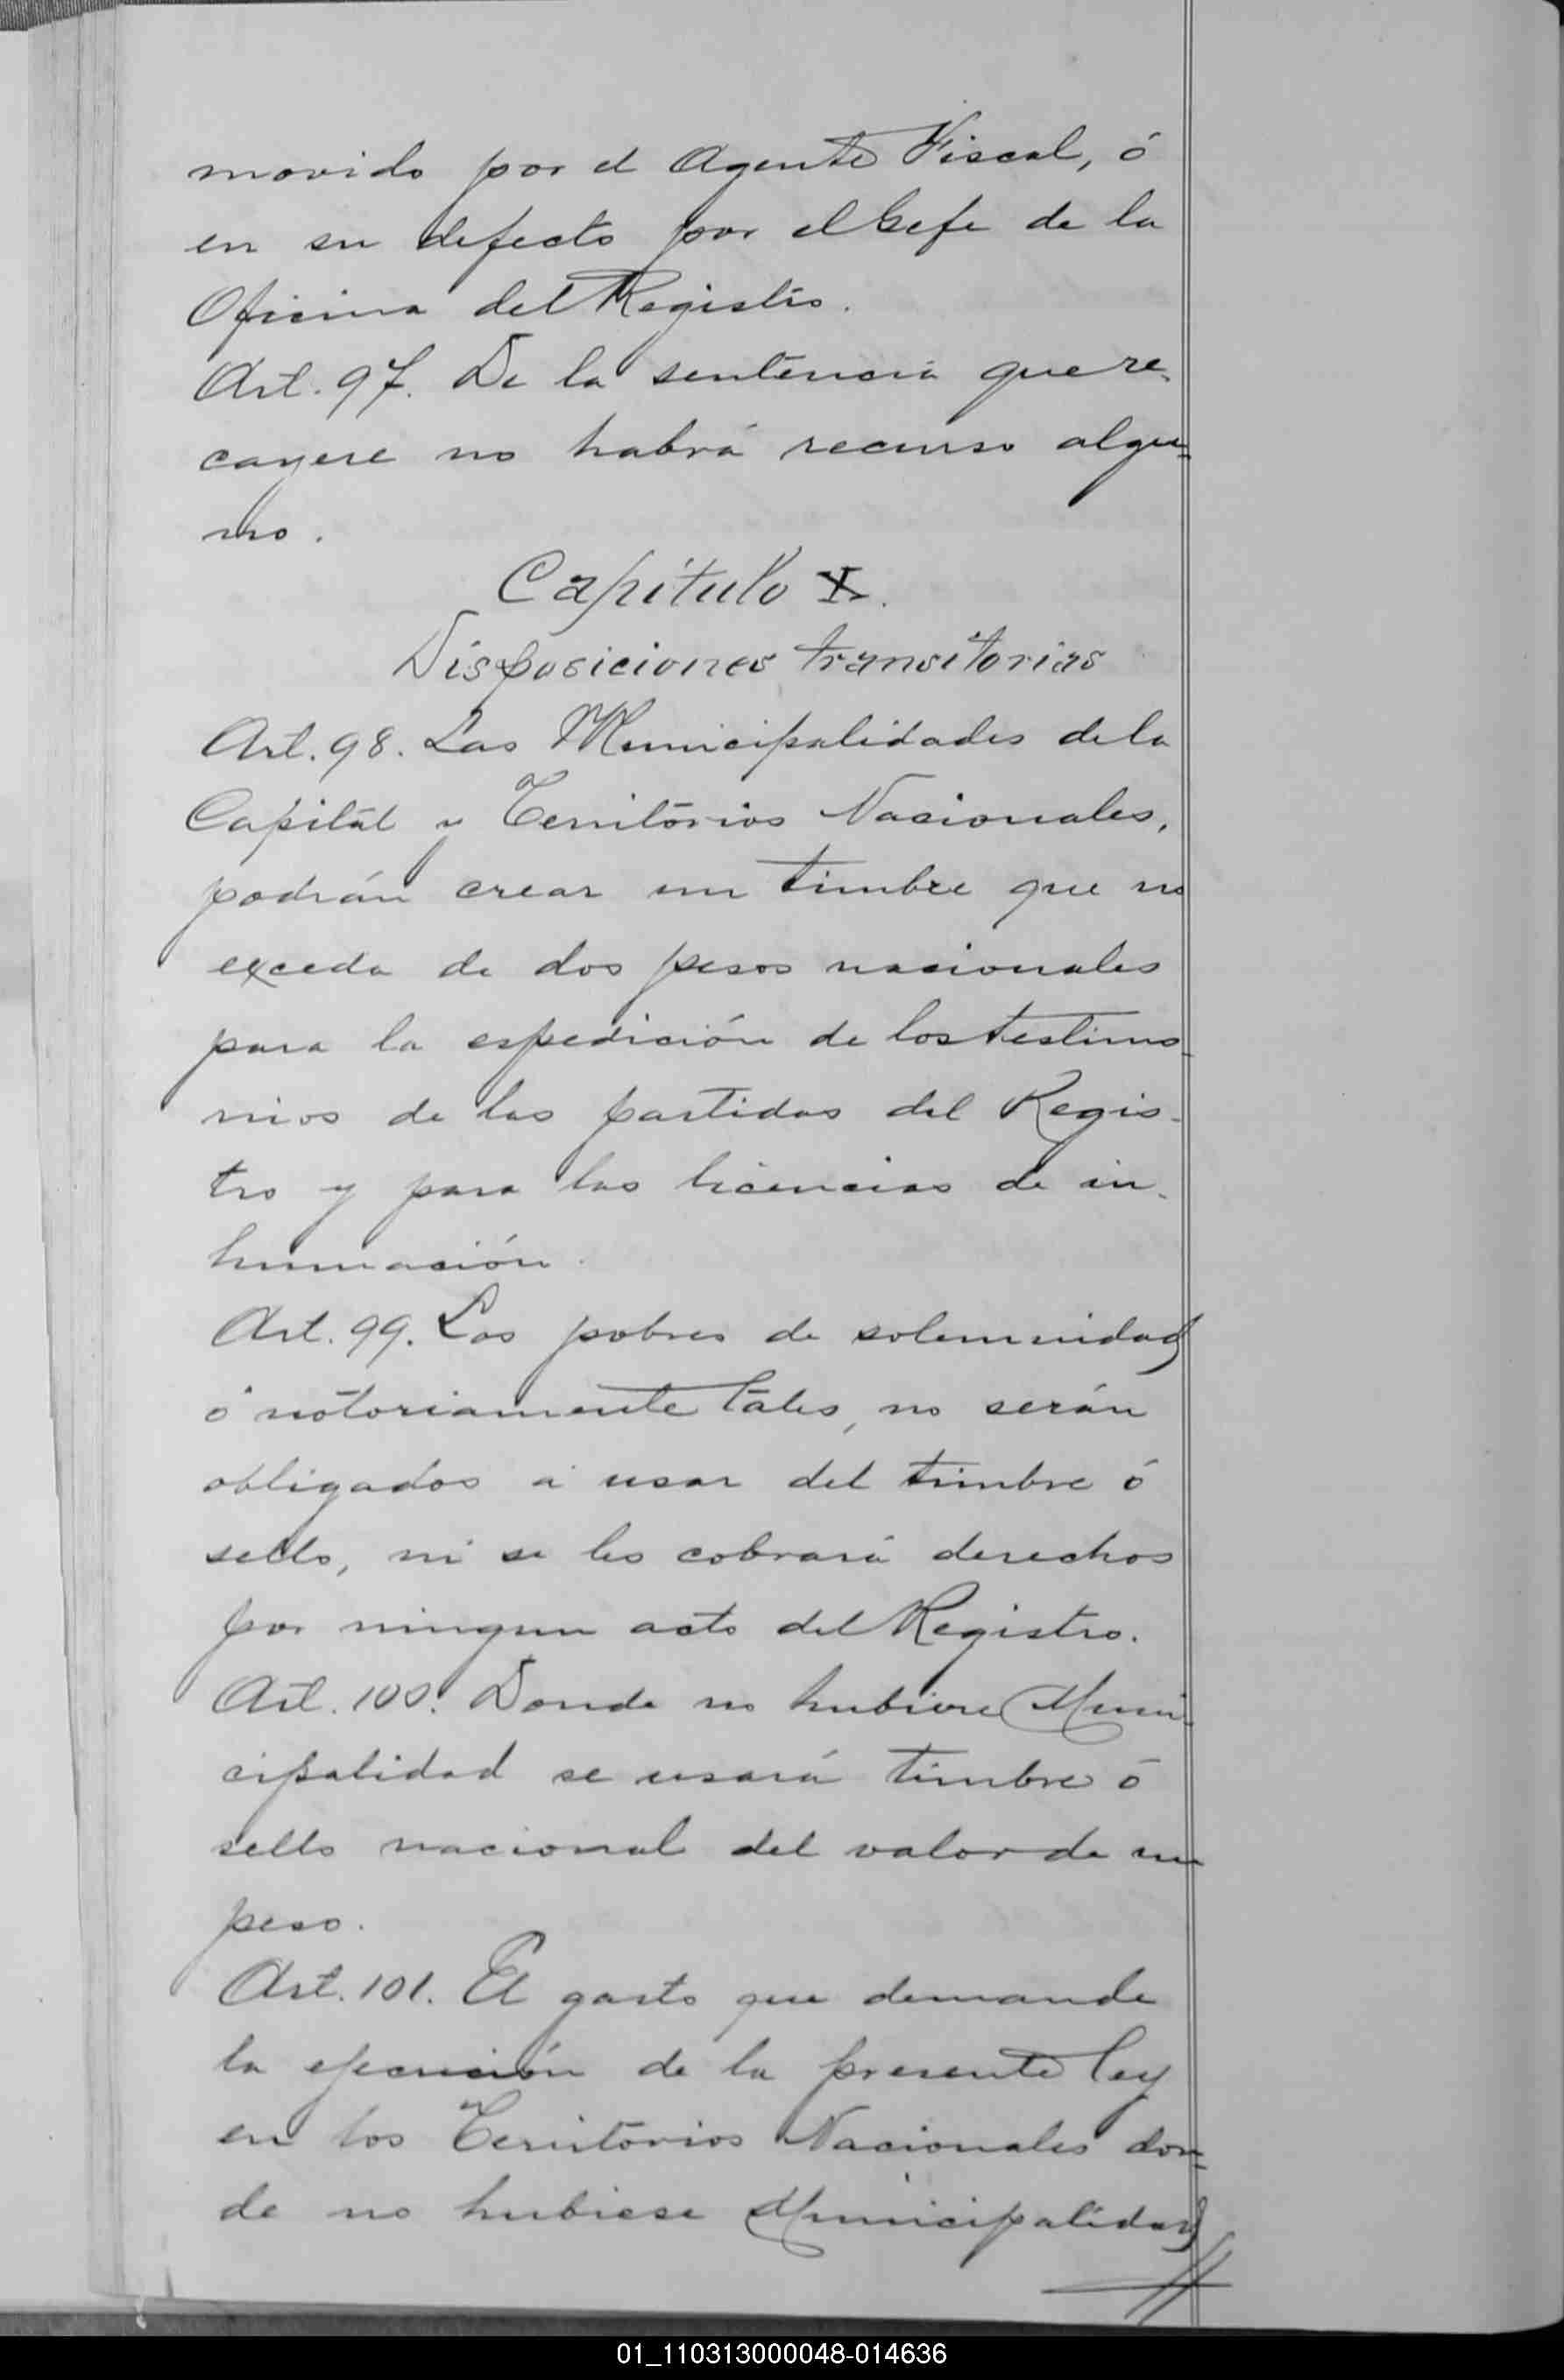 movido por el Agente Fiscal, ó
en su defecto por el Gefe de la
Oficina del Registro.
Art. 97. De la sentencia que re-
cayere no habrá recurso algu=
no.
Capítulo X.
Disposiciones transitorias
Art. 98. Las Municipalidades de la
Capital y Territorios Nacionales,
podrán crear un timbre que no
exceda de dos pesos nacionales
para la espedición de los testimo-
nios de las partidas del Regis-
tro y para las licencias de in-
humación.
Art. 99. Los pobres de solemnidad
ó notoriamente tales, no serán
obligados á usar del timbre ó
sello, ni se les cobrará derechos
por ningun acto del Registro.
Art. 100. Donde no hubiere Muni-
cipalidad se usará timbre ó
sello nacional del valor de un
peso.
Art. 101. El gasto que demande
la ejecución de la presente ley
en los Territorios Nacionales don=
de no hubiese Municipalidad
01_110313000048-014636